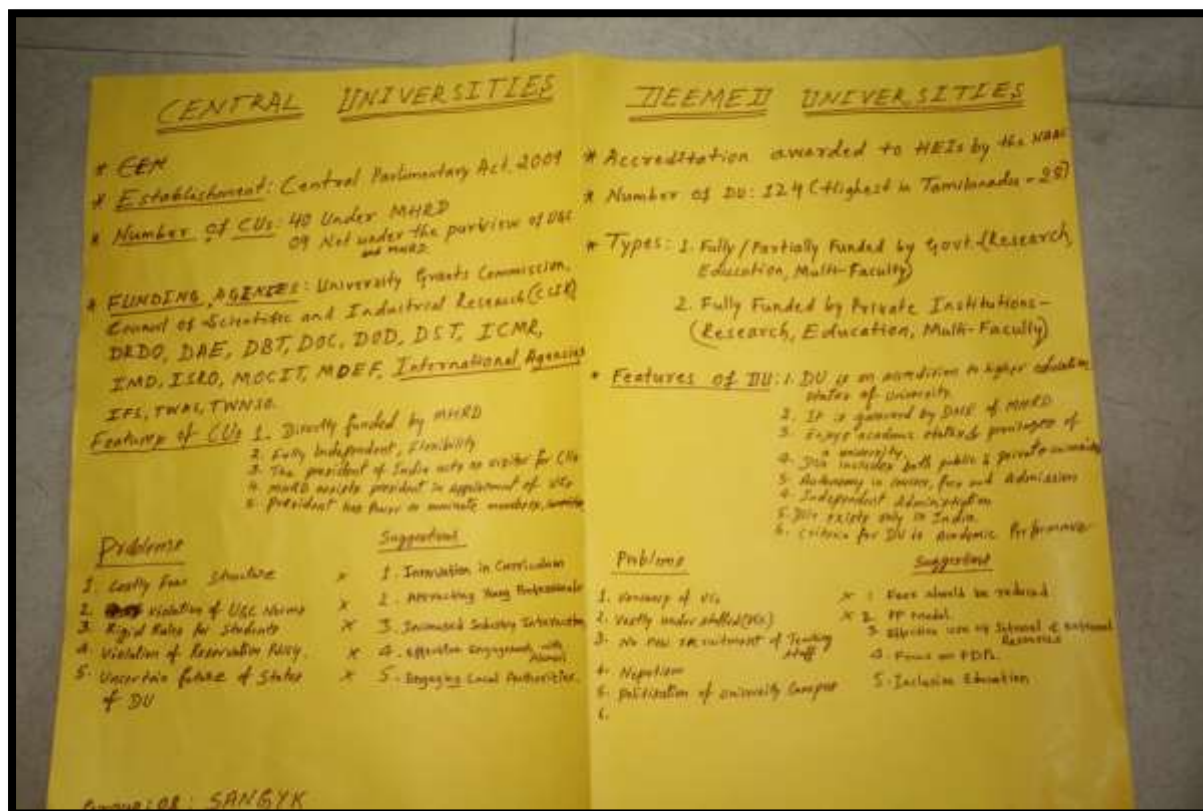 CENTRAL UNIVERSITIES
* CEN
* Establishment: Central Parlimentary Act. 2009
* Number of CUs: 40 Under MHRD
09 Not under the purview of UGC
and MHRD.
* FUNDING AGENIES: University Grants Commission,
Council of Scientific and Industrial Research (CSIR)
DRDO, DAE, DBT, DOC, DOD, DST, ICMR,
IMD, ISRO, MOCIT, MDEF, International Agencies
IFS, TWAS, TWNSO.
Features of CUs 1. Directly funded by MHRD
2. Fully Independent, Flexibility
3. The president of India acts as visitor for CUs
4. MHRD assists president in appointment of VCs
5. President has Power to nominate members,
Problems
1. Costly Fees Structure
2. Violation of UGC Norms
3. Rigid Rules for Students
4. Violation of Reservation Policy.
5. Uncertain future of States
of DU
Suggestions
x 1. Innovation in Curriculum
x 2. Attracting Young Professionals
x 3. Increased Industry Interaction
x 4. Effective Engagement with
Alumni
x 5. Engaging Local Authorities.
Group: 08: SANGYK
DEEMED UNIVERSITIES
* Accreditation awarded to HEIs by the NAAC
* Number of DU: 124 (Highest in Tamilanadu - 28)
* Types: 1. Fully/Partially Funded by Govt. (Research,
Education, Multi-Faculty)
2. Fully Funded by Private Institutions-
(Research, Education, Multi-Faculty)
* Features of DU: 1. DU is an to higher education
status of University.
2. It is governed by DHE of MHRD
3. Enjoys academic status & privileges of
a university
4. DUs includes both public & private
5. Autonomy in courses, fees and Admissions
4. Independent Administration
5. DUs exists only in India
6. Criteria for DU is Academic Performance
Problems
1. Vacancy of VCs
2. Vastly under staffed
3. No new recruitment of Teaching
Staff
4. Nepotism
5. Politization of University Campus
6.
Suggestions
x 1 Fees should be reduced
x 2. PP model.
3. Effective use of Internal & External
Resources
4. Focus on FDPs.
5. Inclusive Education